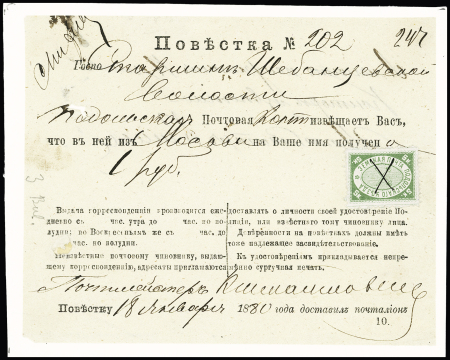 Повѣстка № 202
247
Старшинѣ Шебанцевской
Волости
Подольская Почтовая Конт извѣщаетъ Васъ,
что въ ней изъ Москвы на Ваше имя получен
1 руб.
Выдача корреспонденціи производится еже-
дневно съ час. утра до час. по по-
лудни; по Воскреснымъ же съ час. до
час. по полудни.
Неизвѣстные почтовому чиновнику, вызывае-
мому корреспонденцію, адресаты приглашаются
доставлять о личности своей удостовѣреніе По-
лиціи, или извѣстнаго тому чиновнику лица.
Довѣренности на повѣсткахъ должны имѣть
тоже надлежащее засвидѣтельствованіе.
Къ удостовѣреніямъ прикладывается непре-
мѣнно сургучная печать.
Почтмейстеръ
Повѣстку 18 Января 1880 года доставилъ почталіонъ
10.